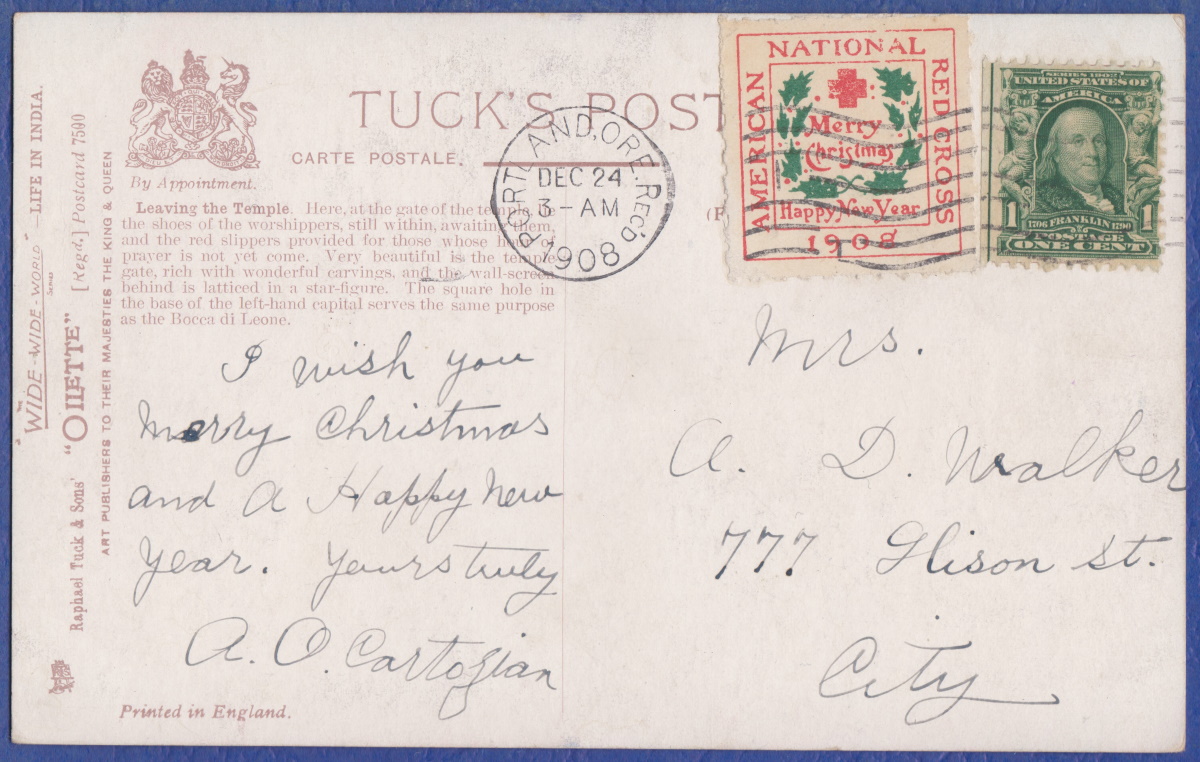 "WIDE-WIDE-WORLD" SERIES —LIFE IN INDIA.
Raphael Tuck & Sons' "OILETTE" [Regd.] Postcard 7590
ART PUBLISHERS TO THEIR MAJESTIES THE KING & QUEEN
By Appointment.
TUCK'S POST
CARTE POSTALE.
Leaving the Temple. Here, at the gate of the temple,
the shoes of the worshippers still within, awaiting them,
and the red slippers provided for those whose
is not yet come is the temple
gate, wonderful and the wall-screen
behind is latticed in a star-figure. The square hole in
the base of the left-hand capital serves the same purpose
as the Bocca di Leone.
PORTLAND, ORE. REC'D
DEC 24
3-AM
1908
AMERICAN NATIONAL RED CROSS
Merry
Christmas
Happy New Year
1908
SERIES 1902
UNITED STATES OF
AMERICA
1 1
1706 FRANKLIN 1790
POSTAGE
ONE CENT
I wish you
Merry Christmas
and a Happy New
Year. Yours truly
A. O. Cartozian
Mrs.
A. D. Walker
777 Glison St.
City
Printed in England.